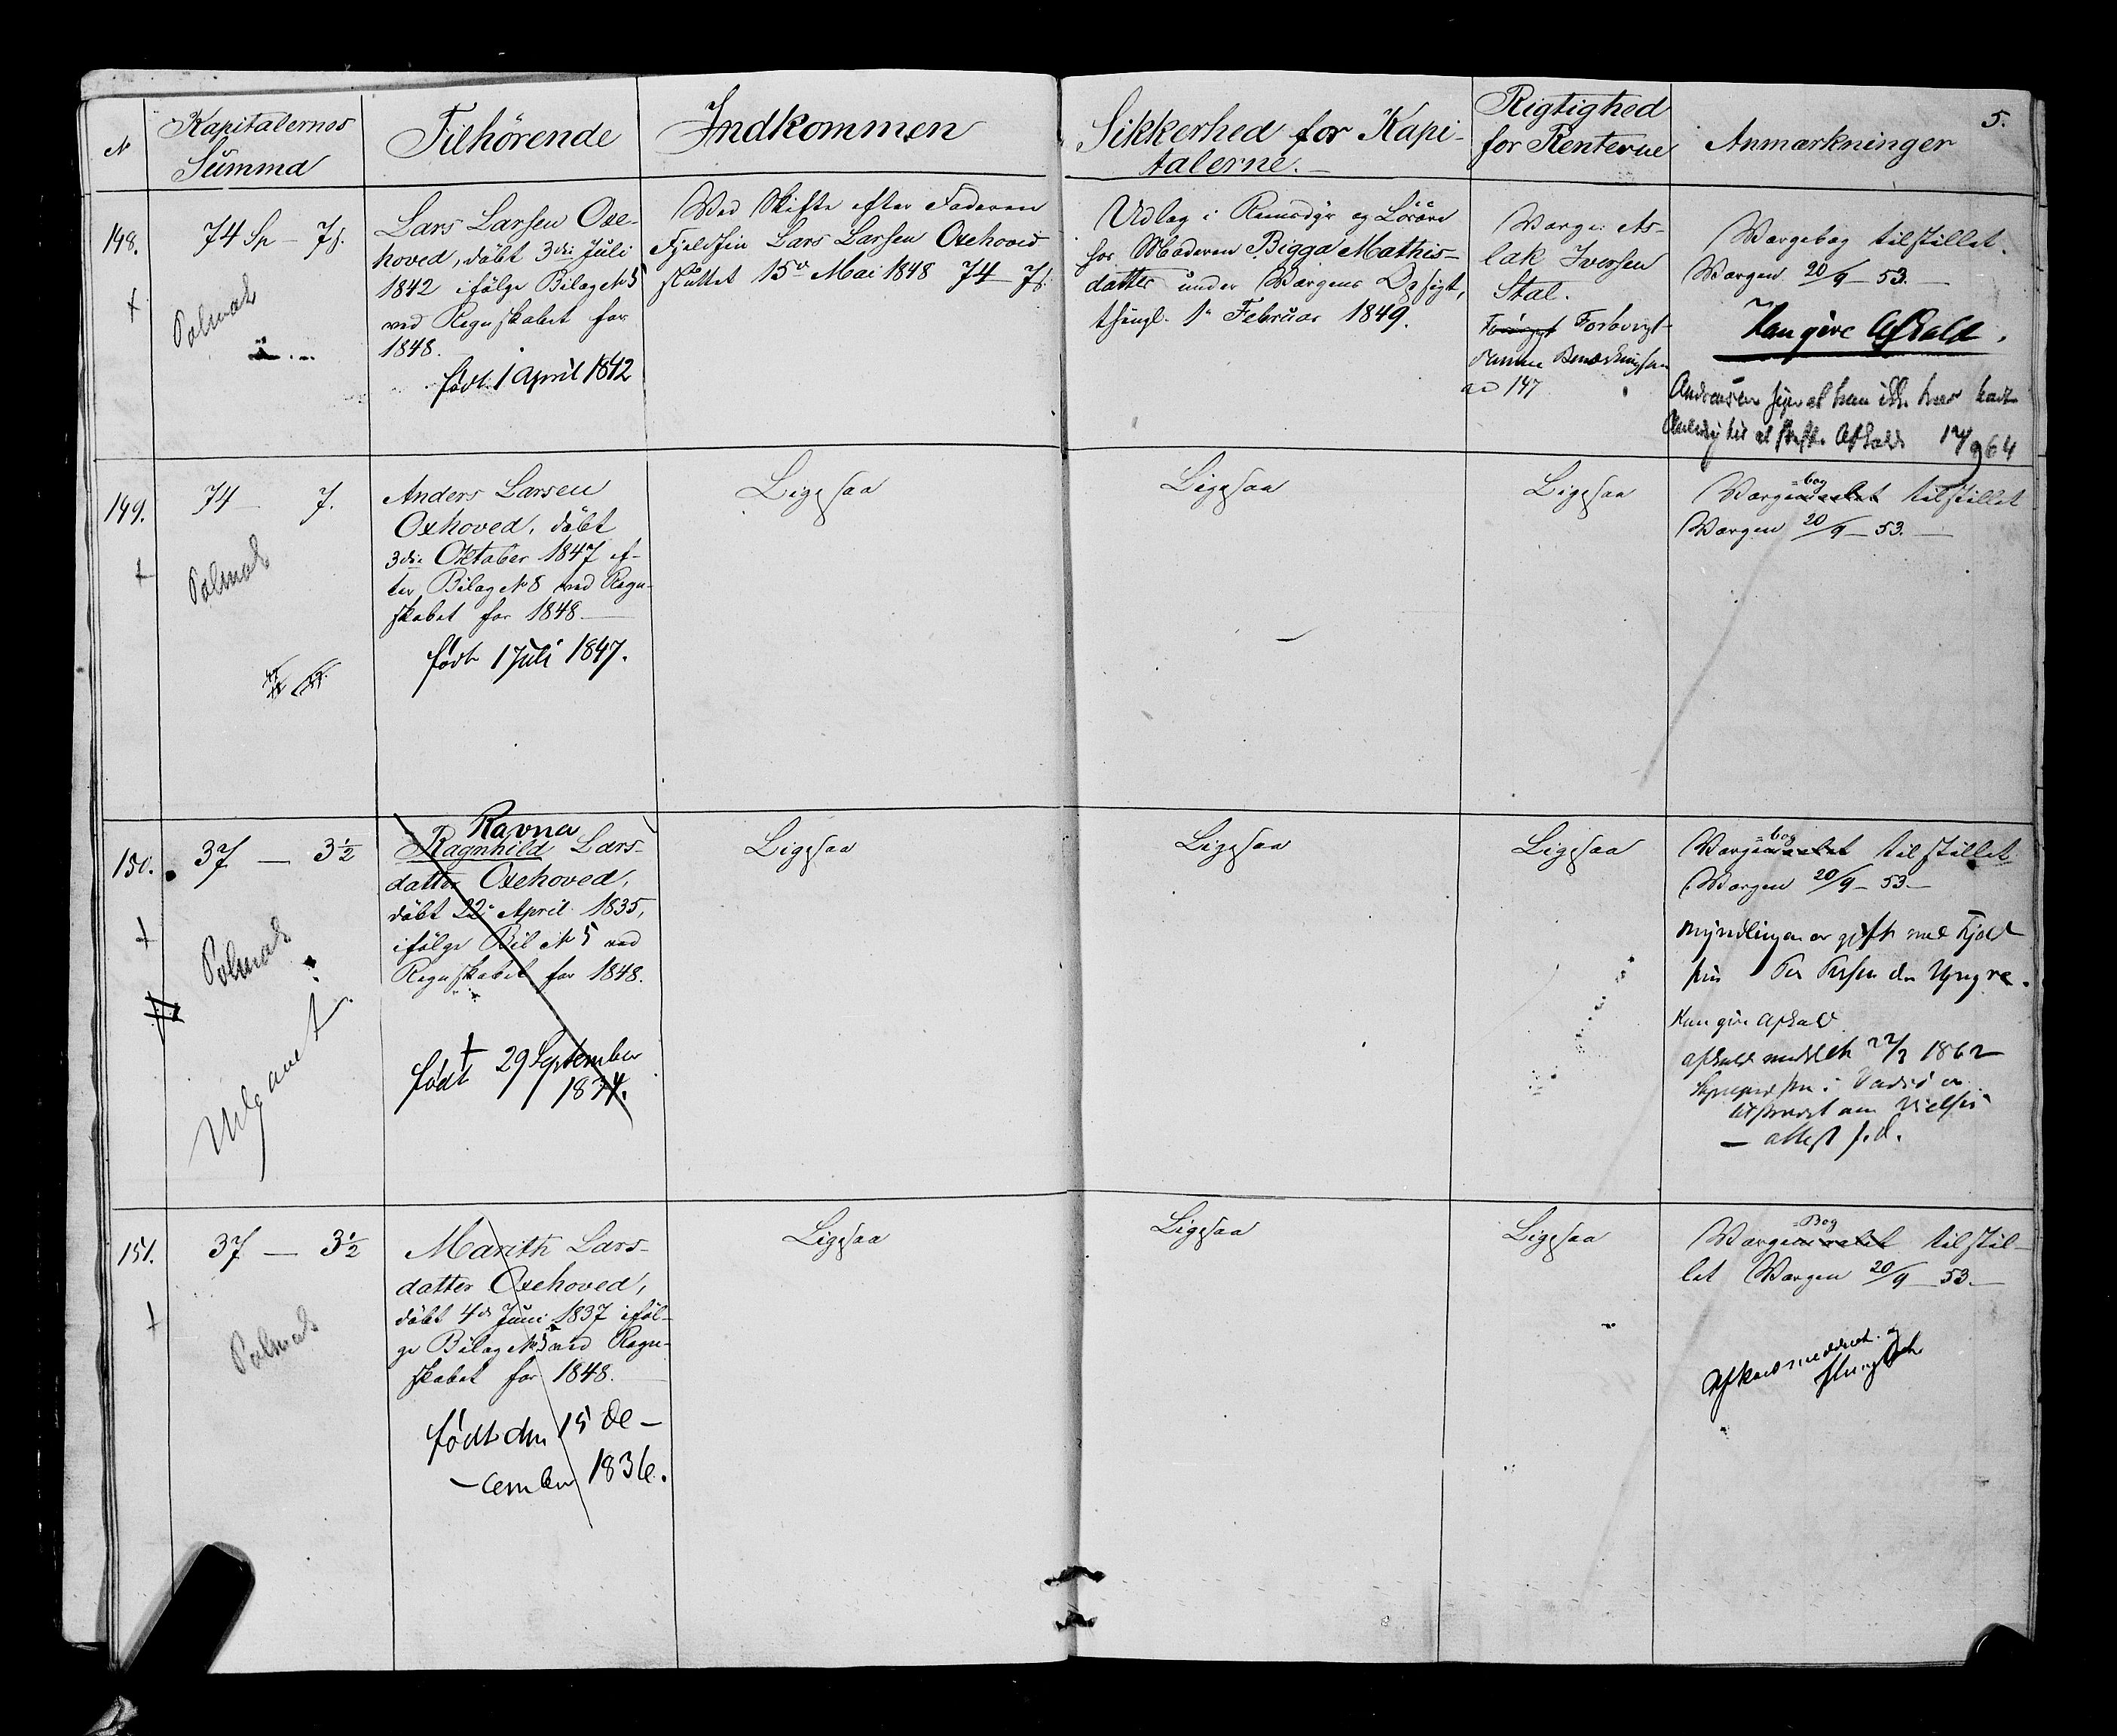 5.
N
Kapitalernes
Summa
Tilhörende
Indkommen
Sikkerhed for Kapi-
talerne.
Rigtighed
for Renterne
Anmærkninger
148.
74 Sp - 7 s.
Polmak
Lars Larsen Oxe-
hoved, döbt 3die Juli
1842 ifölge Bilag N 5
ved Regnskabet for
1848.
födt 1 April 1842
Ved Skifte efter Faderen
Fjeldfin Lars Larsen Oxehoved
sluttet 15de Mai 1848 74 - 7 s.
Udlæg i Rensdyr og Lösöre
hos Moderen Bigga Mathis-
datter under Værgens Opsigt,
thingl. 1ste Februar 1849.
Værge: As-
lak Iversen
Stal.
Forövrigt
samme Bemærkning som
ad 147
Værgebog tilstillet
Værgen 20/9 - 53.
Kan give Afkald.
Andreasen siger at han ikke har havt
Anledng til at skaffe Afkald 17/9 64
149.
74 - 7.
Polmak
Anders Larsen
Oxhoved, döbt
3die Oktober 1847 ef-
ter Bilag N 8 ved Regn-
skabet for 1848.
födt 1 Juli 1847.
Ligesaa
Ligesaa
Ligesaa
=bog
Værge tilstillet
Værgen 20/9 - 53.
150.
37 - 3½
Polmak
Udgaaet
Ravna
Ragnhild Lars-
datter Oxehoved,
döbt 22de April 1835,
ifölge Bil N 5 ved
Regnskabet for 1848.
födt 29 September
1834.
Ligesaa
Ligesaa
Ligesaa
=bog
Værge tilstillet
Værgen 20/9 - 53
Myndlingen er gift med Fjeld
fin Per Persen den Yngre.
Kan give Afkald
afkald meddelt 22/3 1862
i Vadsö er
om Vielses
- attest s.d.
151.
37 - 3½
Polmak
Marith Lars-
datter Oxehoved,
döbt 4de Juni 1837 iföl-
ge Bilag N 5 ved Regn-
skabet for 1848.
födt den 15 De-
- cember 1836.
Ligesaa
Ligesaa
Ligesaa
=Bog
Værge tilstil-
let Værgen 20/9 - 53.
Afkald meddelt og